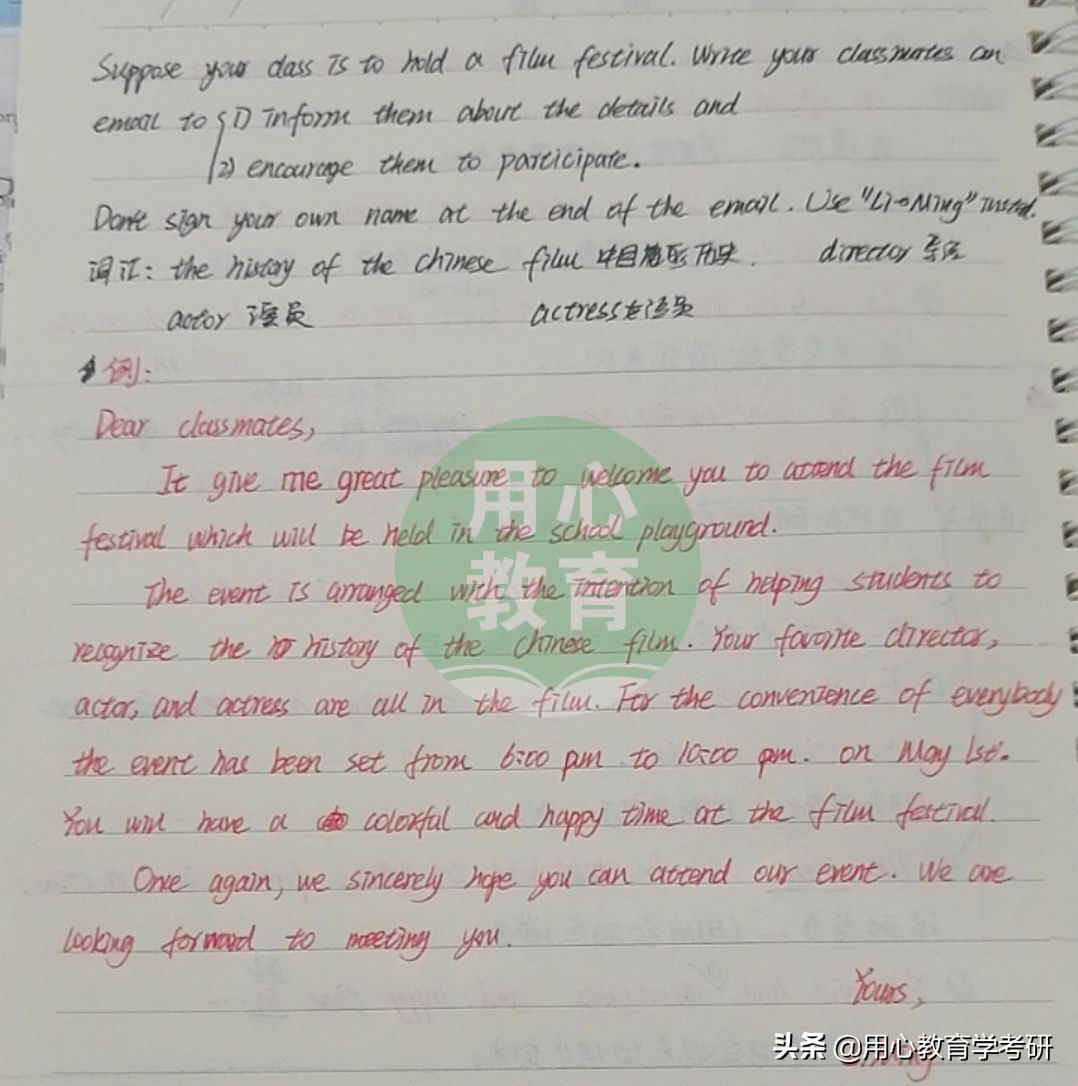 Suppose your class is to hold a film festival. Write your classmates an
email to { 1) inform them about the details and
2) encourage them to participate.
Don't sign your own name at the end of the email. Use "Li Ming" instead.
词汇: the history of the chinese film 中国电影历史. director 导演
actor 演员 actress 女演员
例:
Dear classmates,
It give me great pleasure to welcome you to attend the film
festival which will be held in the school playground.
The event is arranged with the intention of helping students to
recognize the history of the chinese film. Your favorite director,
actor, and actress are all in the film. For the convenience of everybody
the event has been set from 6:00 pm to 10:00 pm. on May 1st.
You will have a colorful and happy time at the film festival.
Once again, we sincerely hope you can attend our event. We are
looking forward to meeting you.
Yours,
用心
教育
头条 @用心教育学考研